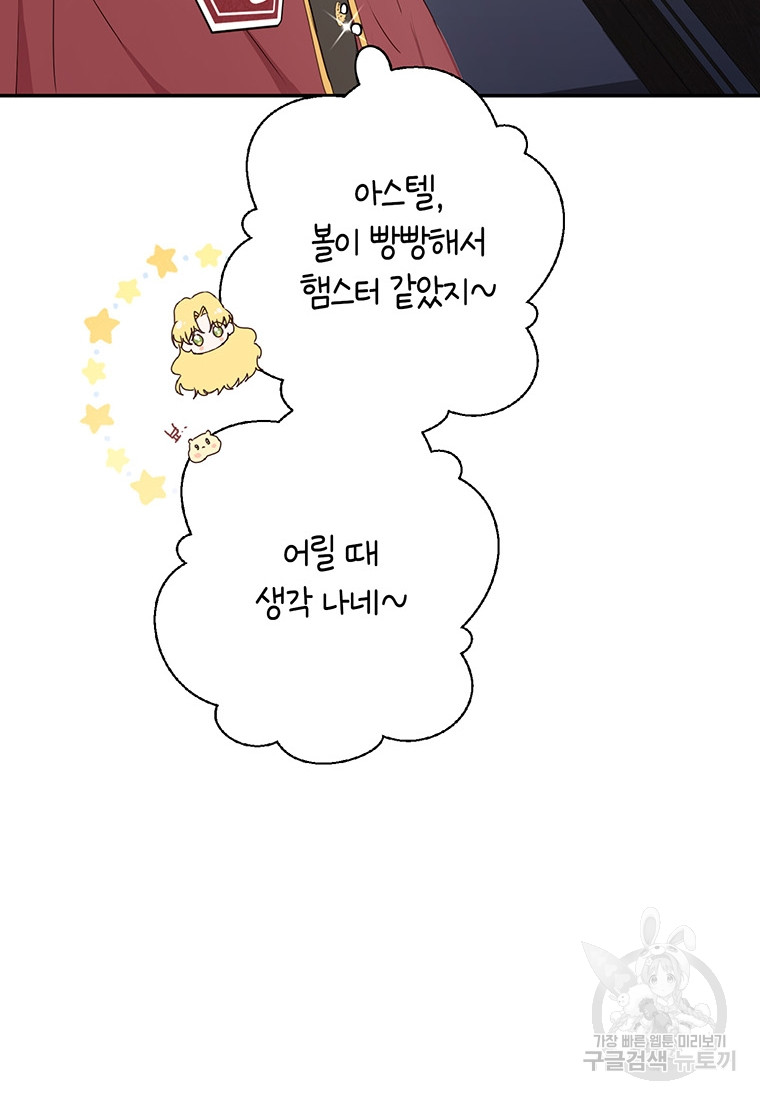 아스텔,
볼이 빵빵해서
햄스터 같았지~
어릴 때
생각 나네~
가장 빠른 웹툰 미리보기
구글검색 뉴토끼